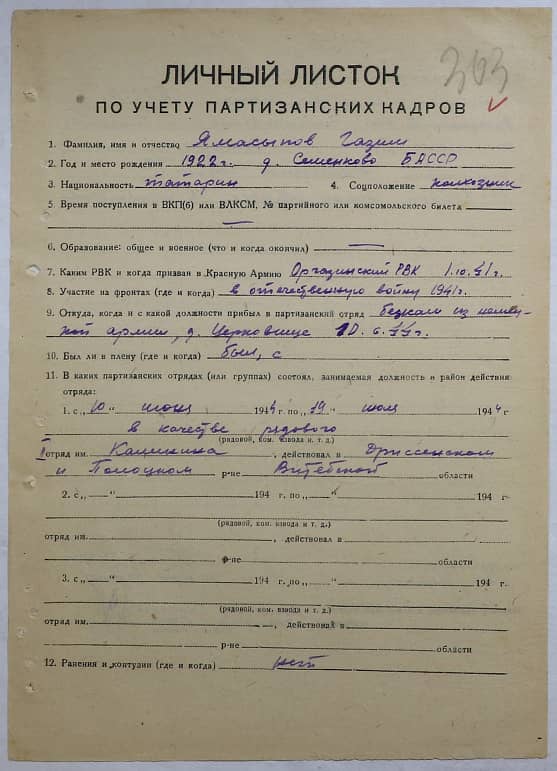 363
ЛИЧНЫЙ ЛИСТОК
ПО УЧЕТУ ПАРТИЗАНСКИХ КАДРОВ
1. Фамилия, имя и отчество Ямасыпов Газим
2. Год и место рождения 1922 г. д. Семенково БАССР
3. Национальность татарин 4. Соцположение колхозник
5. Время поступления в ВКП(б) или ВЛКСМ, № партийного или комсомольского билета
—
6. Образование: общее и военное (что и когда окончил) —
7. Каким РВК и когда призван в Красную Армию Оргазинский РВК 1.10.41 г.
8. Участие на фронтах (где и когда) в отечественную войну 1941 г.
9. Откуда, когда и с какой должности прибыл в партизанский отряд бежал из немец-
кой армии, д. Церковище 10.6.44 г.
10. Был ли в плену (где и когда) был, с
11. В каких партизанских отрядах (или группах) состоял, занимаемая должность и район действия
отряда:
1. с „10" июня 1944 г. по „19" июля 1944 г
в качестве рядового
(рядовой, ком. взвода и т. д.)
отряд им. Калинина, действовал в Дриссенском
и Полоцком р-не Витебской области
2. с „ — " 194 г. по „ — " 194 г.
(рядовой, ком. взвода и т. д.)
отряд им. , действовал в
р-не области
3. с „ — " 194 г. по „ " 194 г.
(рядовой, ком. взвода и т. д.)
отряд им. , действовал в
р-не области
12. Ранения и контузии (где и когда) нет